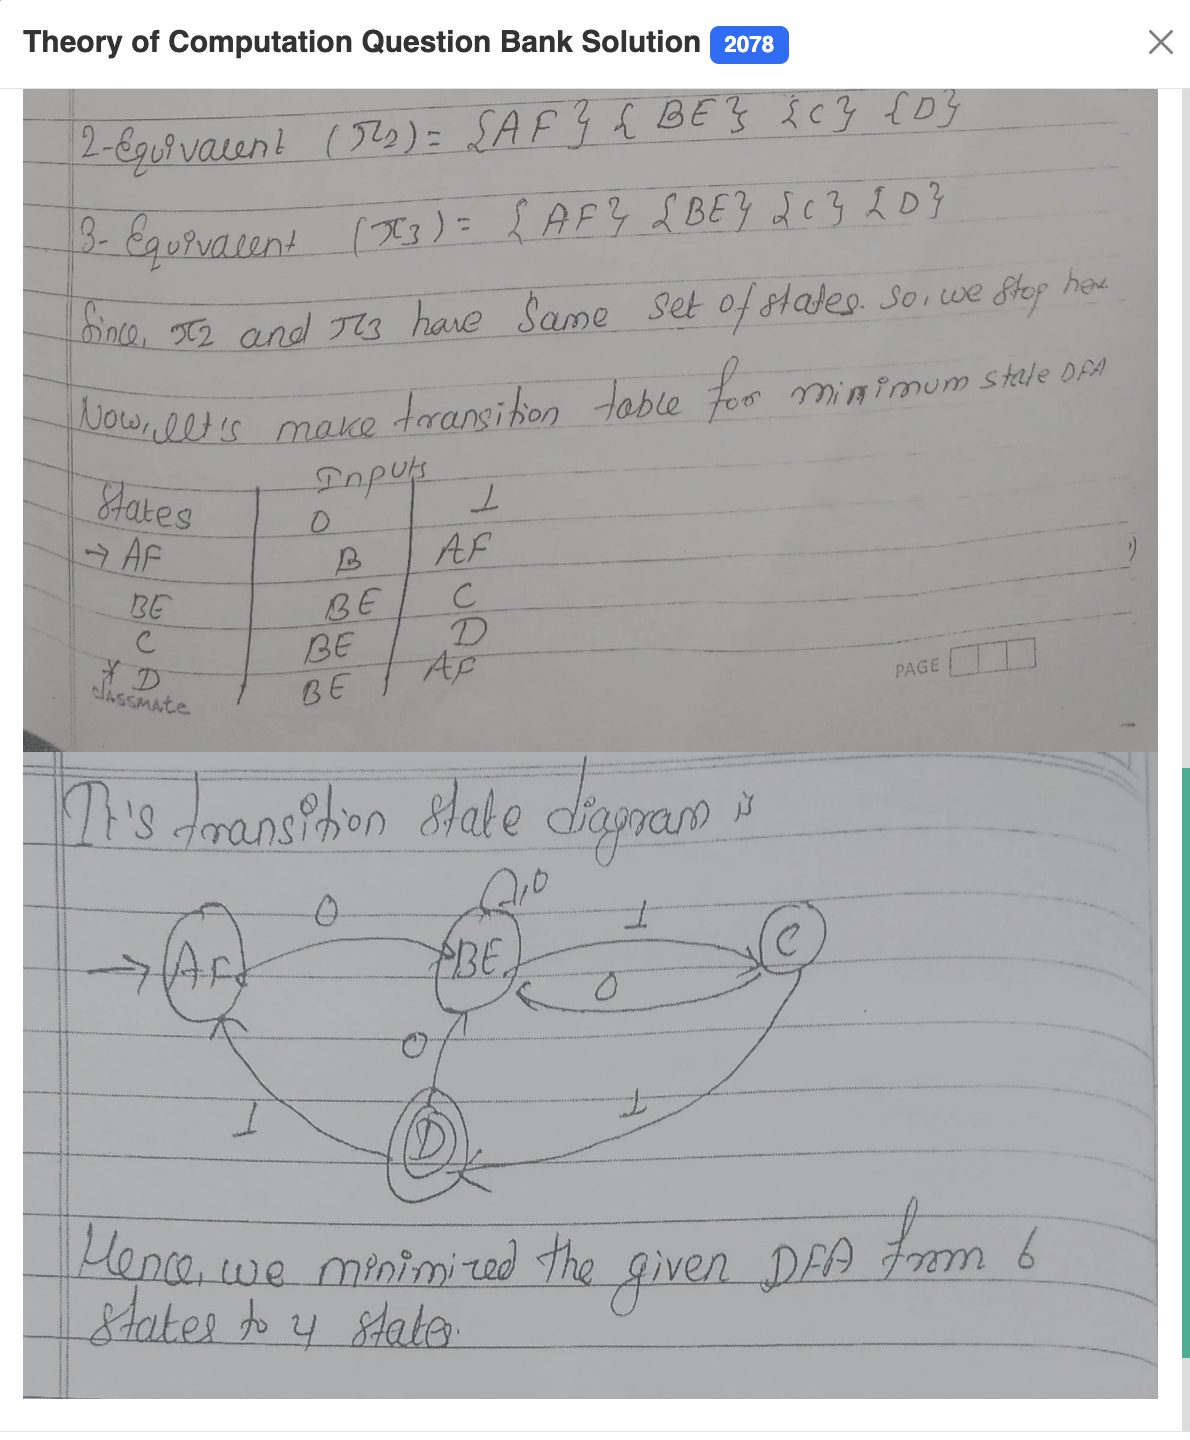 Theory of Computation Question Bank Solution 2078
2-Equivalent (π2) = {AF} {BE} {C} {D}
3-Equivalent (π3) = {AF} {BE} {C} {D}
Since, π2 and π3 have same set of states. So, we stop here
Now, let's make transition table for minimum state DFA
Inputs
States 0 1
→ AF B AF
BE BE C
C BE D
* D BE AF
classmate
PAGE
It's transition state diagram is
0 0 1
→ AF BE C
0
0
1 1
D
Hence, we minimized the given DFA from 6
states to 4 states.